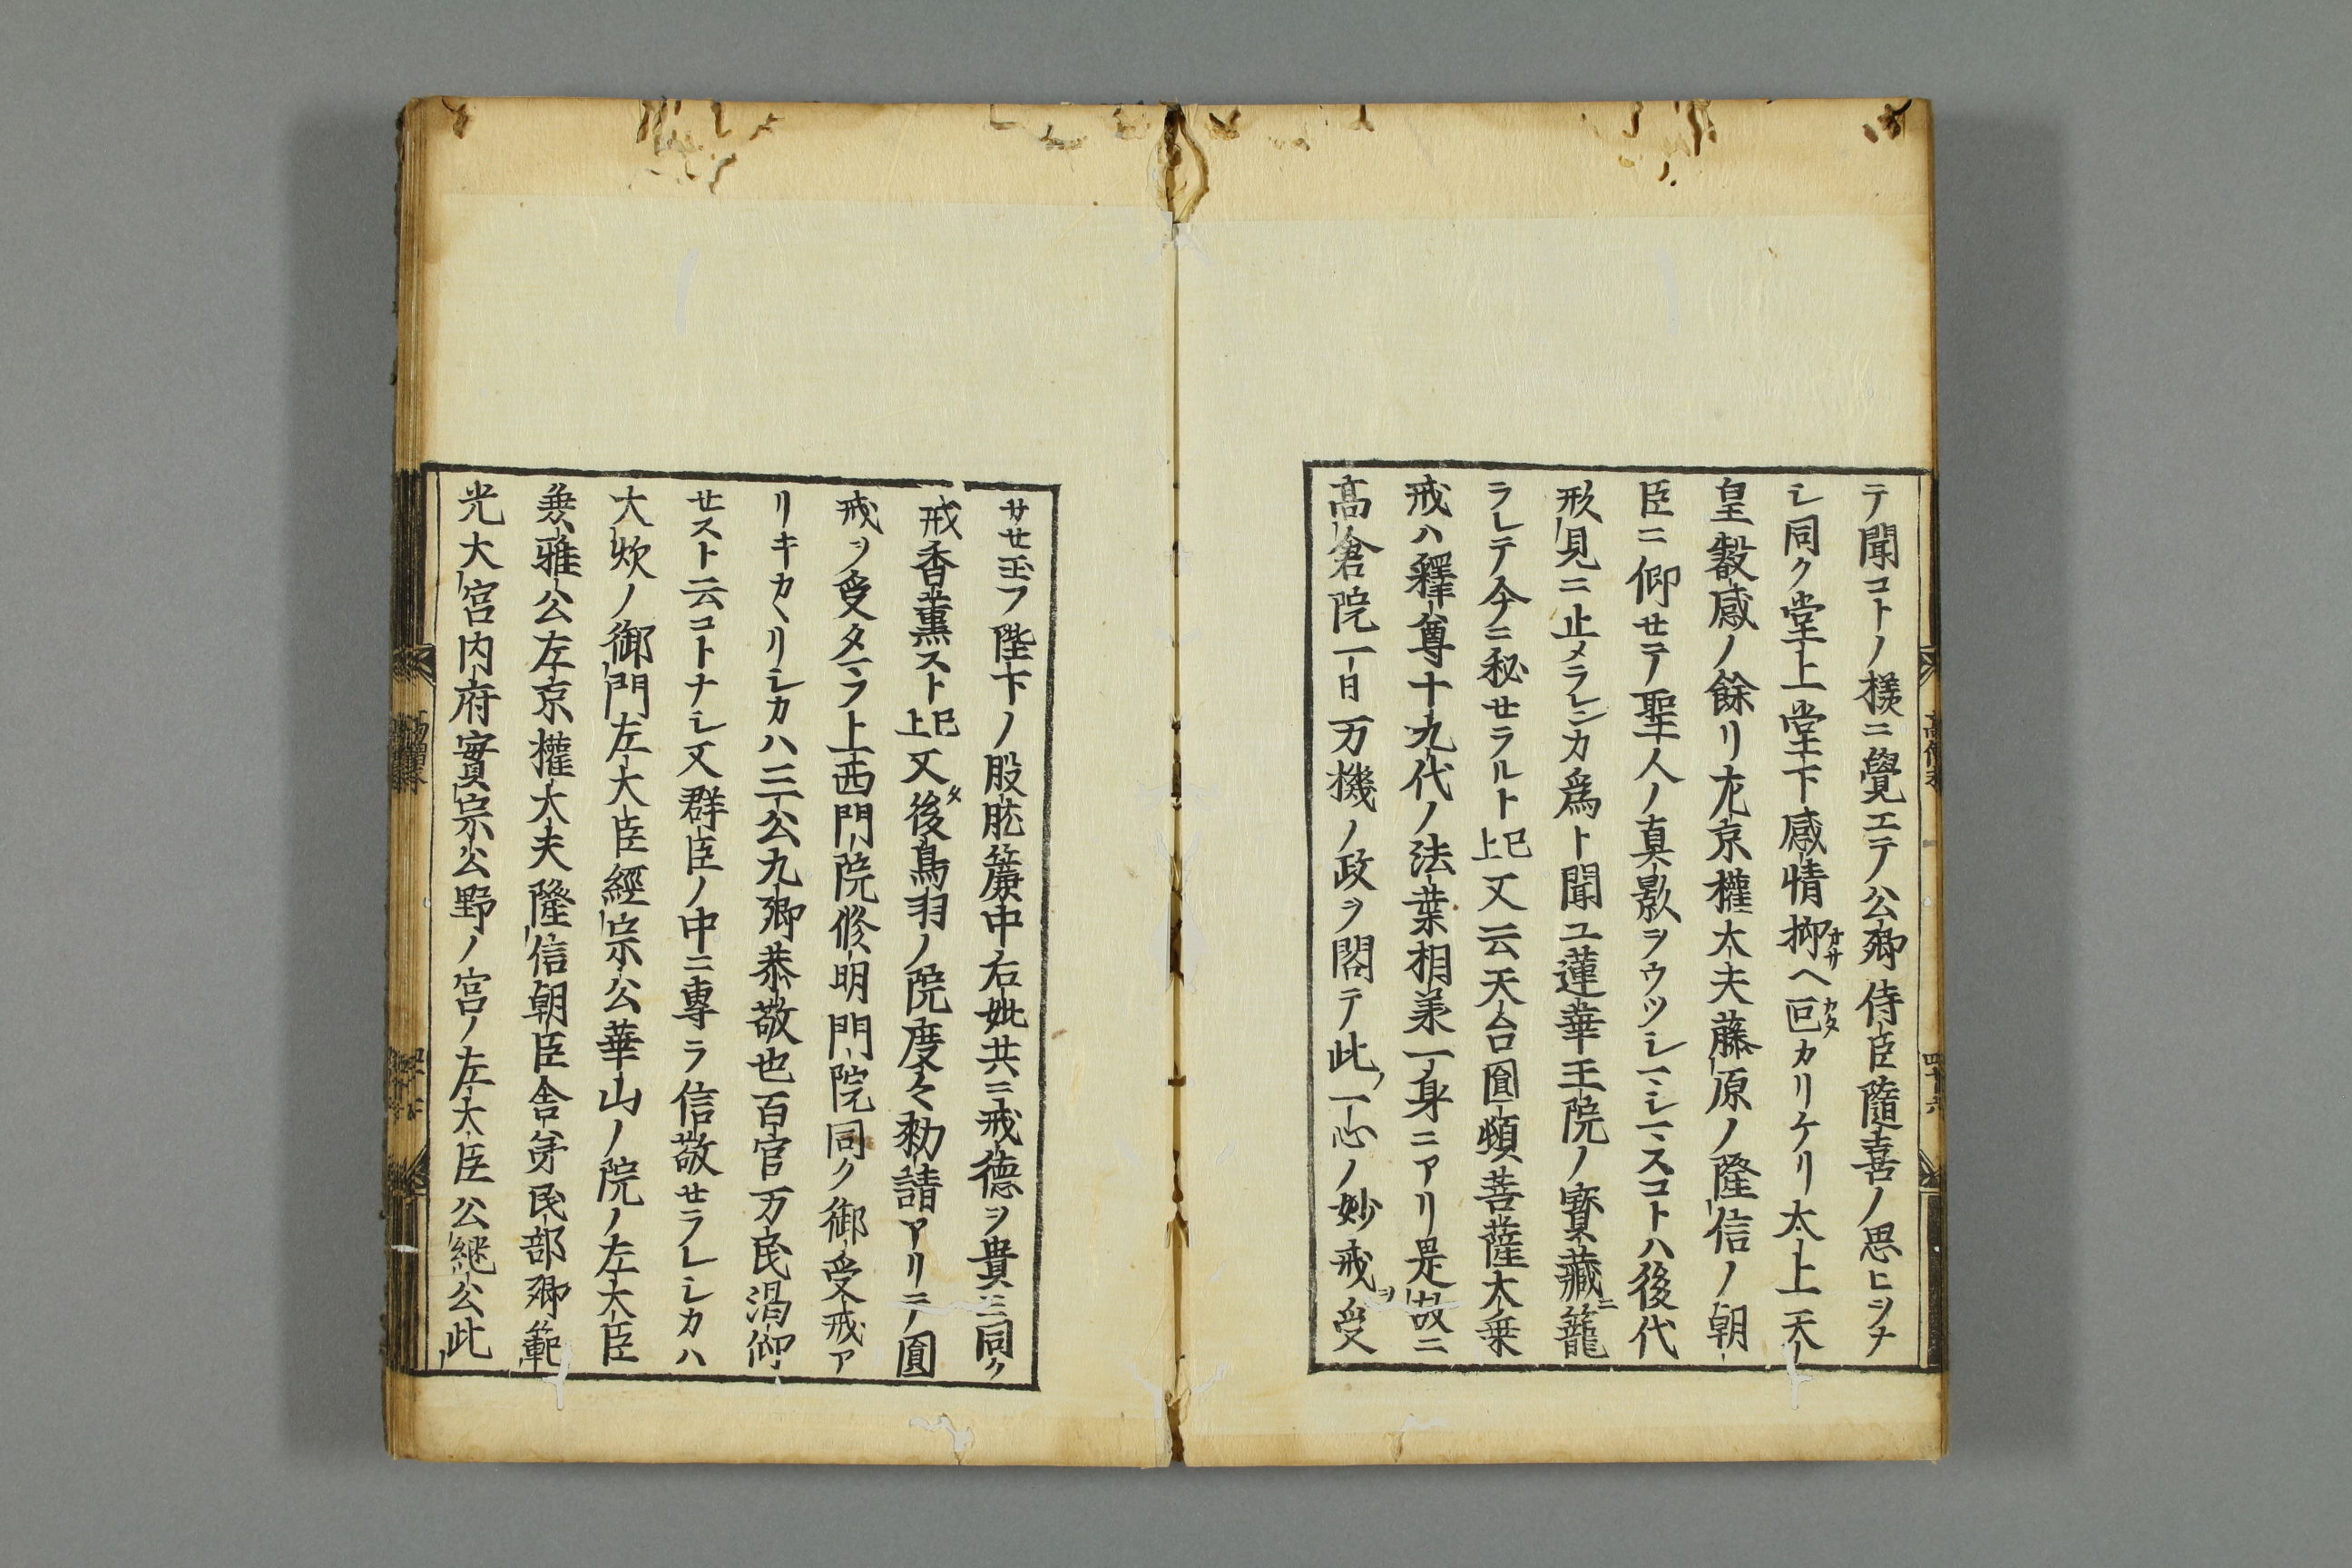 テ聞コトノ様ニ覺エテ公卿侍臣隨喜ノ思ヒヲナ
シ同ク堂上堂下感情抑ヘ叵カリケリ太上天
皇叡感ノ餘リ左京權太夫藤原ノ隆信ノ朝
臣ニ仰セテ聖人ノ真影ヲウツシマシマスコトハ後代
形見ニ止メラレンカ爲ト聞ユ蓮華王院ノ寳藏ニ籠
ラレテ今ニ秘セラルト已上又云天台圓頓菩薩大乗
戒ハ釋尊十九代ノ法葉相兼一身ニアリ是故ニ
髙倉院一日万機ノ政ヲ閣テ此一心ノ妙戒ヲ受
サセ玉フ陛下ノ股肱簾中右妣共ニ戒德ヲ貴ミ同ク
戒香薫スト已上又後鳥羽ノ院度々勅請アリテ圓
戒ヲ受タマフ上西門院修明門院同ク御受戒ア
リキカヽリシカハ三公九卿恭敬也百官万民渇仰
セスト云コトナシ又群臣ノ中ニ專ラ信敬セラレシカハ
大炊ノ御門左大臣經宗公華山ノ院ノ左大臣
兼雅公左京權大夫隆信朝臣舎弟民部卿範
光大宮内府實宗公野ノ宮ノ左大臣公継公此
四十六